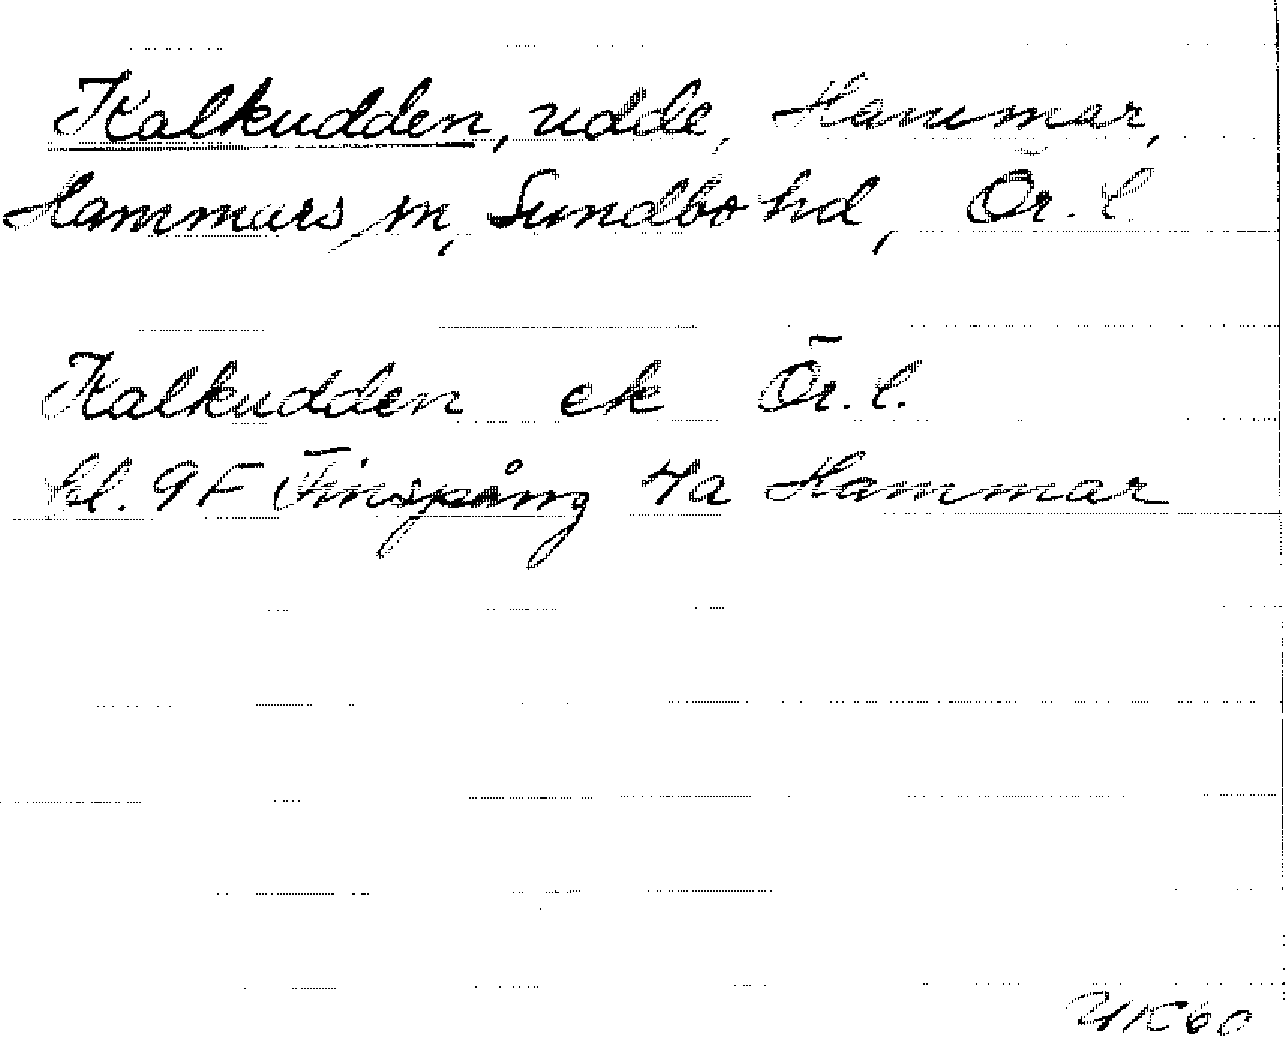 Kalkudden, udde, Hammar,
Hammars sn, Sundbo hd, Ör. l.
Kalkudden ek Ör. l.
bl. 9F Finspång 4a Hammar